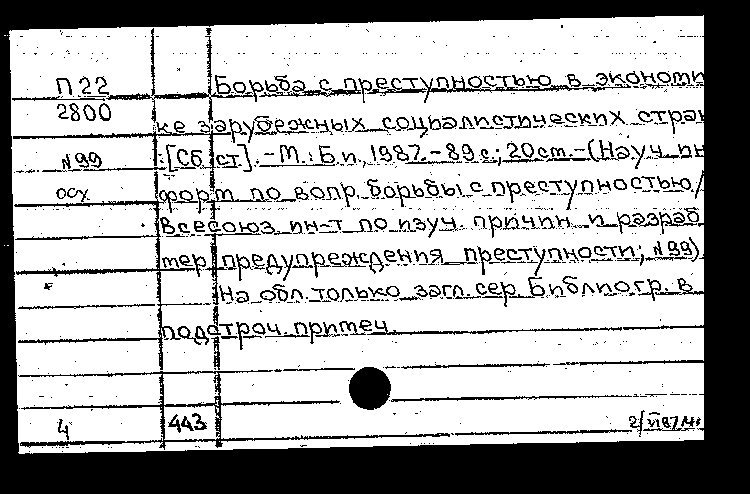 П 22
2800
N 99
осх
Борьба с преступностью в экономи
ке зарубежных социалистических стран
:[Сб. ст]. - М.: Б.п, 1987. - 89 с.; 20 см. - (Науч. ин
форм по вопр. борьбы с преступностью/
Всесоюз ин-т по изуч. причин и разраб
мер предупреждения преступности; N 99).
На обл. только загл. сер. Библиогр. в
подстроч. примеч.
4
443